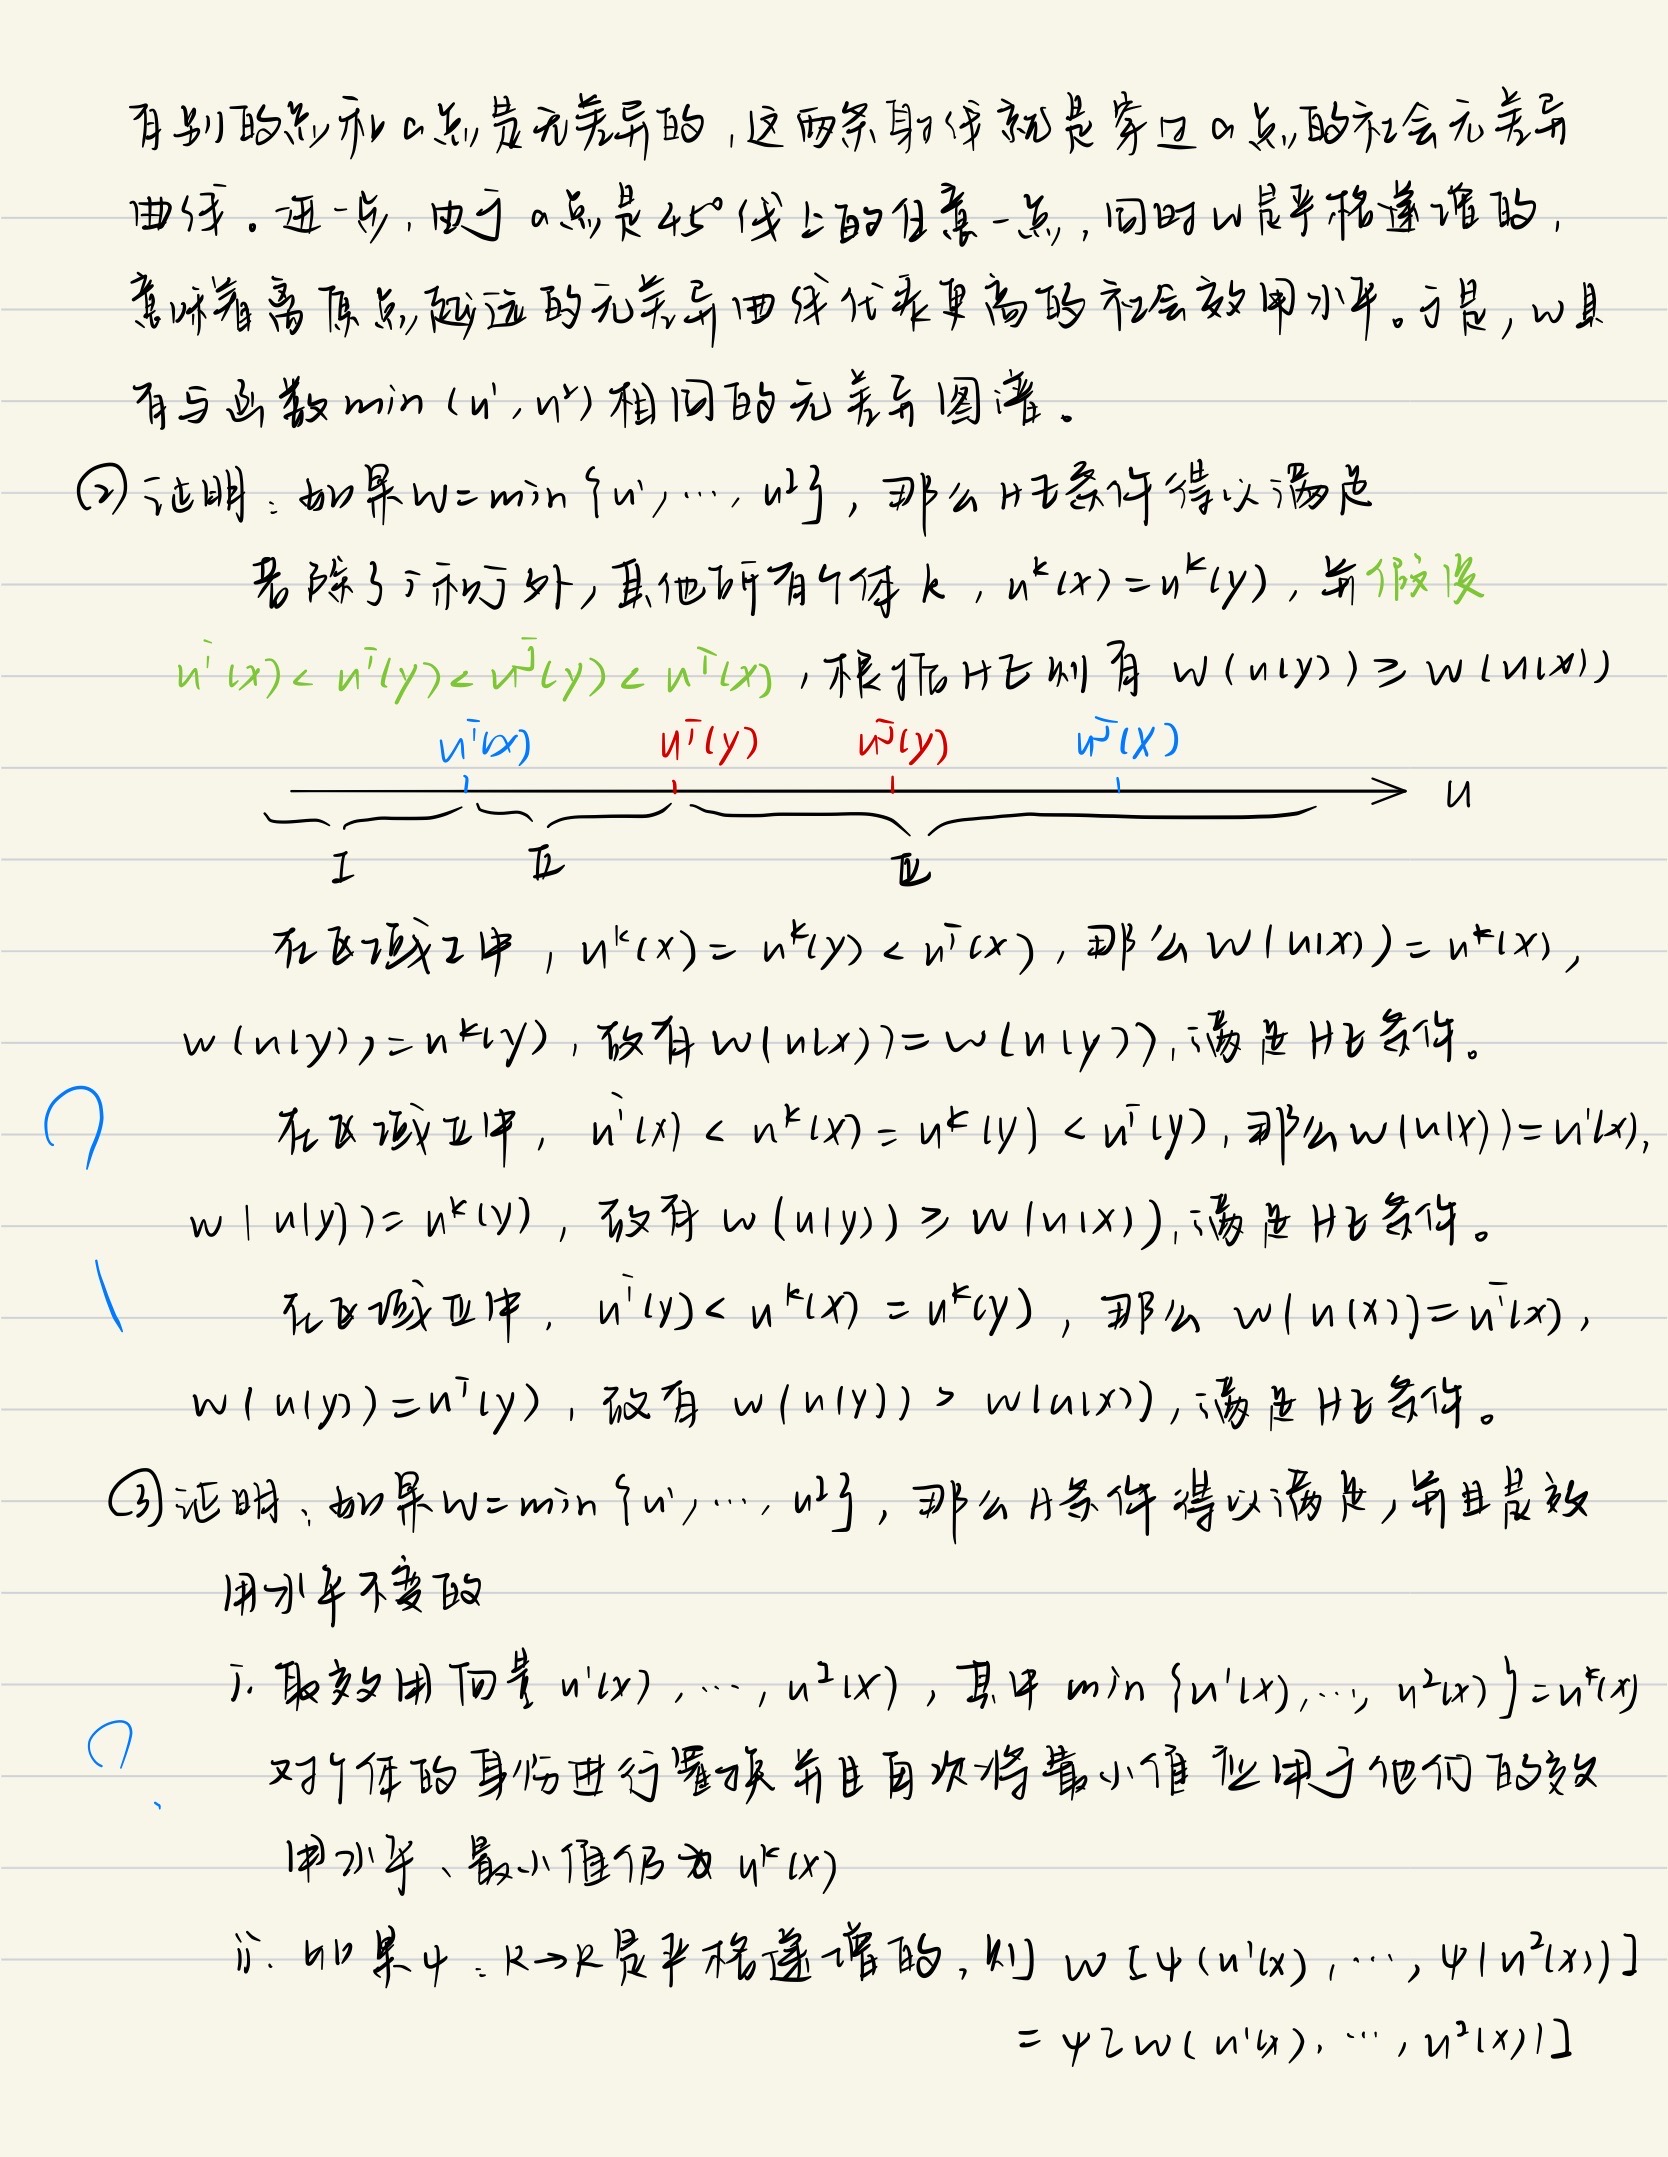 有别的点和a点是无差异的,这两条射线就是穿过a点的社会无差异
曲线。进一步,由于a点是45°线上的任意一点,同时W是严格递增的,
意味着离原点越远的无差异曲线代表更高的社会效用水平。于是,W具
有与函数min(u¹,u²)相同的无差异图谱。
②证明:如果W=min{u¹,…,uᴵ},那么HE条件得以满足
若除了i和j外,其他所有个体k,uᵏ(x)=uᵏ(y),并假设
uⁱ(x)<uⁱ(y)<uʲ(y)<uʲ(x),根据HE则有 W(u(y))≥W(u(x))
uⁱ(x) uⁱ(y) uʲ(y) uʲ(x)
u
I II III
在区域I中,uᵏ(x)=uᵏ(y)<uⁱ(x),那么W(u(x))=uᵏ(x),
W(u(y))=uᵏ(y),故有W(u(x))=W(u(y)),满足HE条件。
? 在区域II中,uⁱ(x)<uᵏ(x)=uᵏ(y)<uⁱ(y),那么W(u(x))=uⁱ(x),
W(u(y))=uᵏ(y),故有W(u(y))≥W(u(x)),满足HE条件。
在区域III中,uⁱ(y)<uᵏ(x)=uᵏ(y),那么 W(u(x))=uⁱ(x),
W(u(y))=uⁱ(y),故有 W(u(y))>W(u(x)),满足HE条件。
③证明:如果W=min{u¹,…,uᴵ},那么A条件得以满足,并且是效
用水平不变的
i. 取效用向量u¹(x),…,uᴵ(x),其中min{u¹(x),…,uᴵ(x)}=uᵏ(x)
? 对个体的身份进行置换并且再次将最小值应用于他们的效
用水平、最小值仍为uᵏ(x)
ii. 如果ψ:R→R是严格递增的,则W[ψ(u¹(x),…,ψ(uᴵ(x))]
=ψ[W(u¹(x),…,uᴵ(x))]